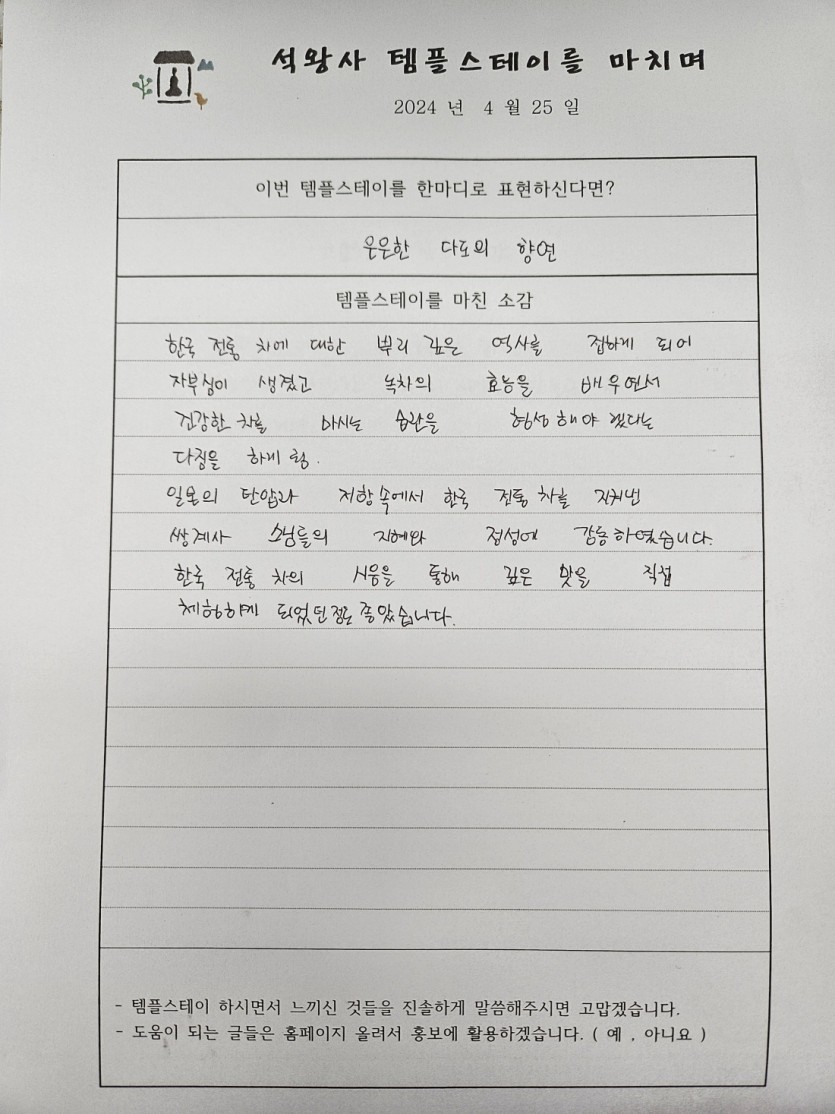 석왕사 템플스테이를 마치며
2024 년 4 월 25 일
이번 템플스테이를 한마디로 표현하신다면?
은은한 다도의 향연
템플스테이를 마친 소감
한국 전통 차에 대한 뿌리 깊은 역사를 접하게 되어
자부심이 생겼고 녹차의 효능을 배우면서
건강한 차를 마시는 습관을 형성해야 겠다는
다짐을 하게 됨.
일본의 탄압과 저항 속에서 한국 전통 차를 지켜낸
쌍계사 스님들의 지혜와 정성에 감동하였습니다.
한국 전통 차의 시음을 통해 깊은 맛을 직접
체험하게 되었던 점도 좋았습니다.
- 템플스테이 하시면서 느끼신 것들을 진솔하게 말씀해주시면 고맙겠습니다.
- 도움이 되는 글들은 홈페이지 올려서 홍보에 활용하겠습니다. ( 예 , 아니요 )